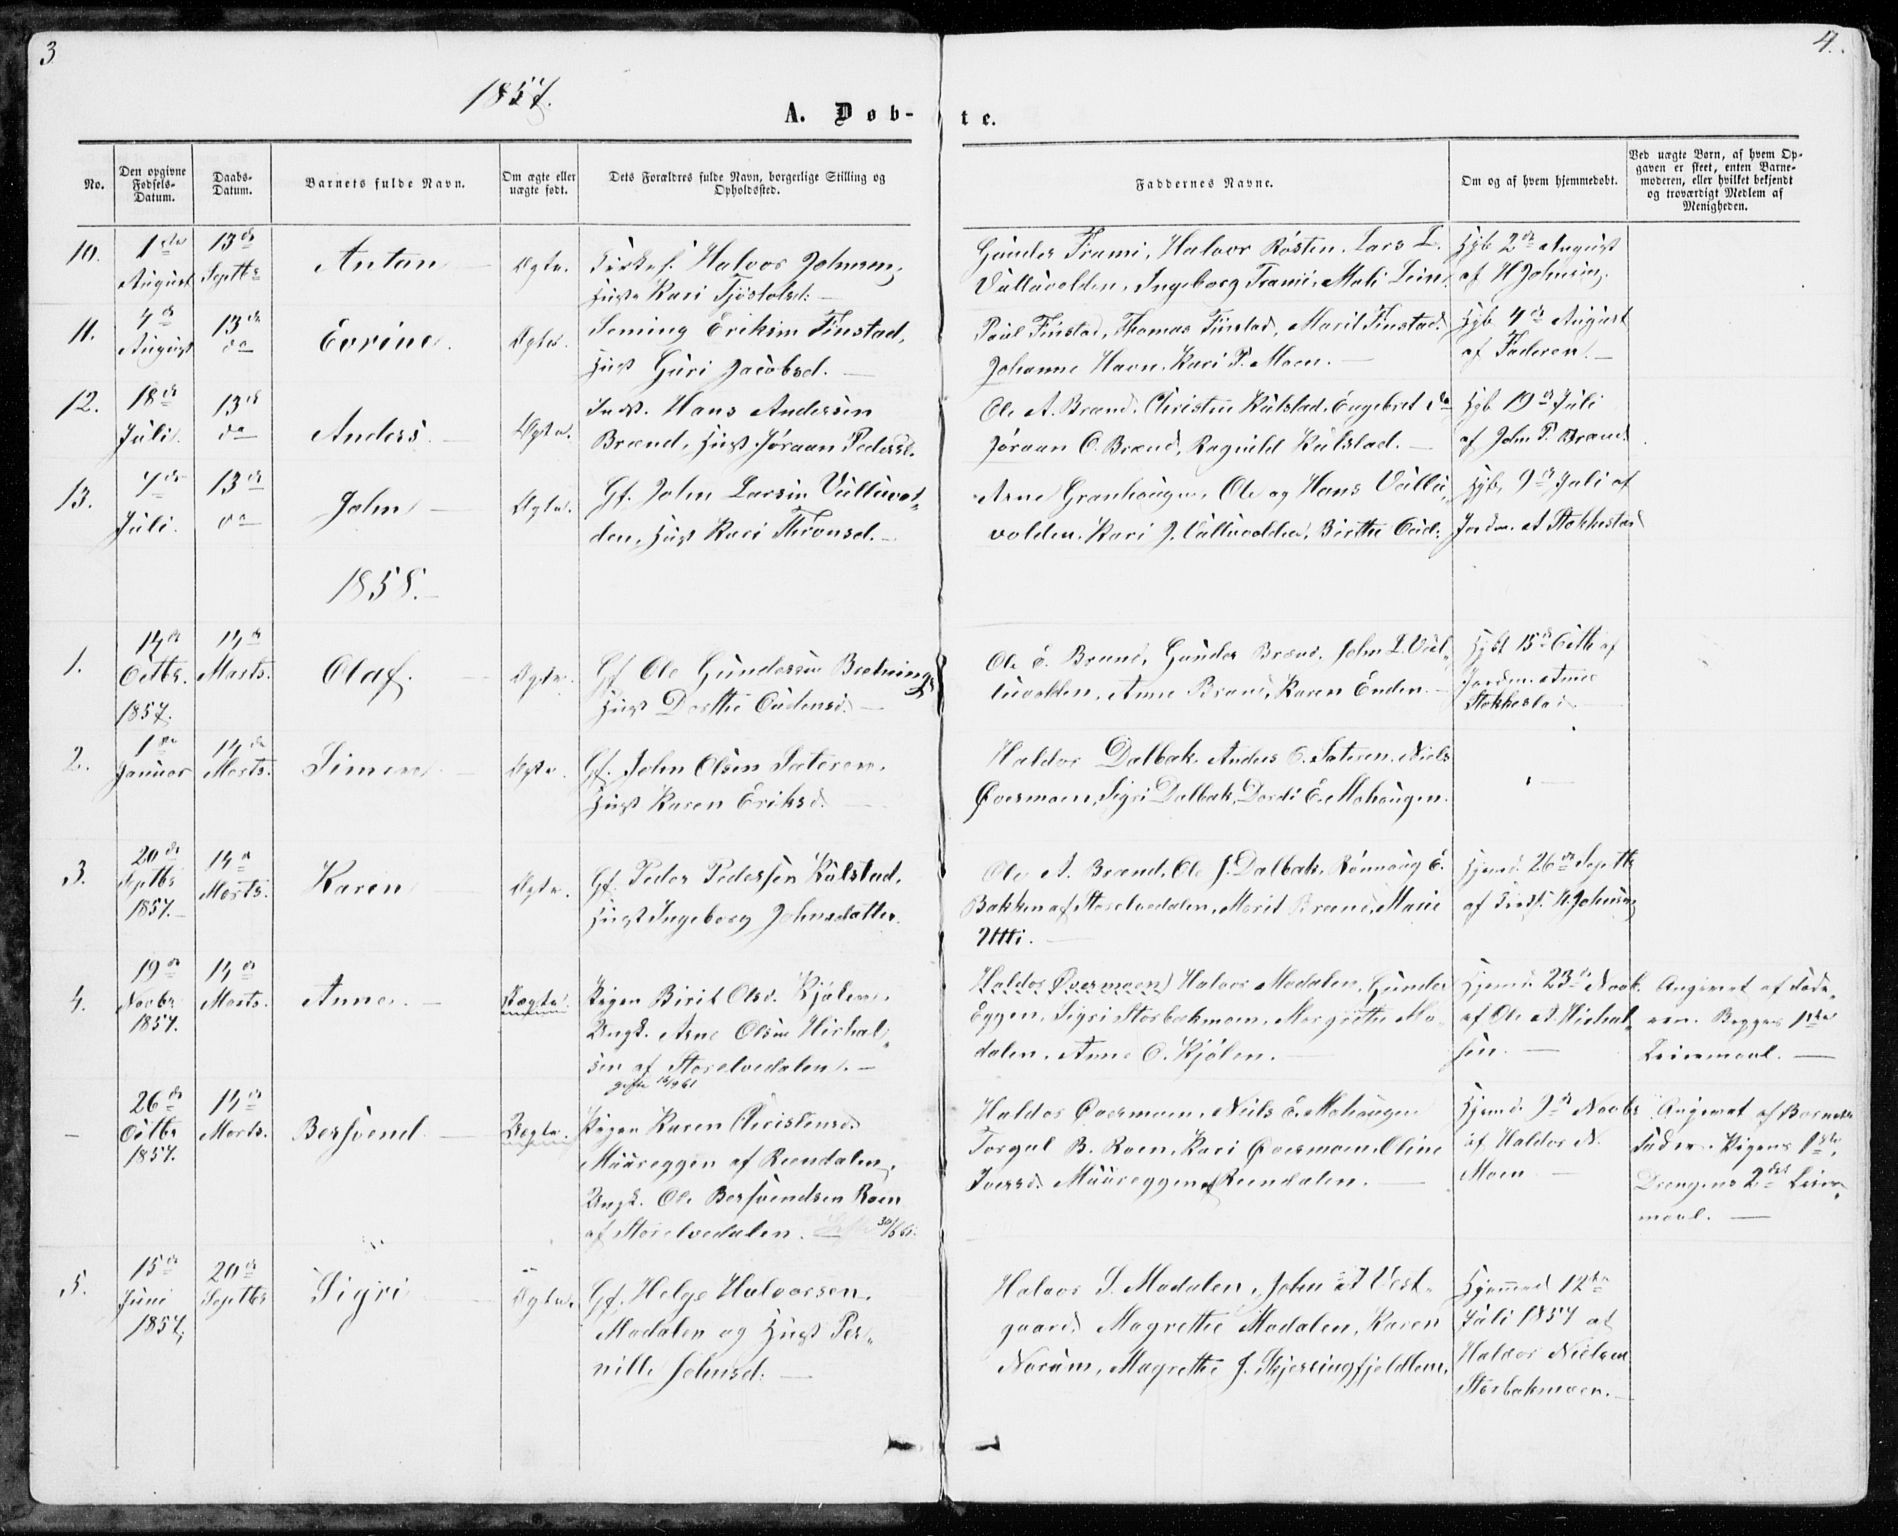 3
4.
1857.
A. Døb-
te.
No.
Den opgivne
Fødsels-
Datum.
Daabs-
Datum.
Barnets fulde Navn.
Om ægte eller
uægte født.
Dets Forældres fulde Navn, borgerlige Stilling og
Opholdssted.
Faddernes Navne.
Om og af hvem hjemmedøbt.
Ved uægte Børn, af hvem Op-
gaven er skeet, enten Barne-
moderen, eller hvilket bekjendt
og troværdigt Medlem af
Menigheden.
10.
1ste
August
13de
Septbr
Anton
Ægte.
Halvor Johnsen,
Hust. Kari Tjøstolsd.
Gunder Trami, Halvor Røsten, Lars L.
Vulluvolden, Ingeborg Trami, Mali
Hjb 2de August
af H Johnsen.
11.
4de
August
13de
do
Evrine
Ægte.
Seming Eriksen Finstad,
Hust Guri Jacobsd.
Paul Finstad, Thomas Finstad, Marit Finstad.
Johanne Havn. Kari P. Moen.
Hjb 4de August
af Faderen.
12.
18de
Juli.
13de
do
Anders.
Ægte.
Indst. Hans Andersen
Brænd, Hust Jøraan Pedersd.
Ole A. Brænd, Christen Kulstad, Engebret do
Jøraan O. Brænd, Ragnild Kulstad.
Hjb 19de Juli
af John P. Brænd.
13.
7de
Juli.
13de
do
John
Ægte.
Gf. John Larsen Vulluvol-
den, Hust Kari Thronsd.
Arne Granhaugen, Ole og Hans Vullu-
volden. Kari J. Vulluvolden, Birthe
Hjb, 9de Juli af
Jordm. A Stokkestad
1858.
1.
14de
Octbr.
1857.
14de
Marts.
Olaf.
Ægte.
Gf Ole Gundersen
Hust Dorthe Oudensd.
Ole E. Brænd, Gunder Brænd. John L. Vul-
luvolden, Anne Brænd, Karen Enden.
Hjbt 15de Octb af
Jordm. Anne
Stokkestad
2.
1ste
Januar
14de
Marts.
Simen
Ægte.
Gf. John Olsen Sateren,
Hust Karen Eriksd.
Haldor Dalbak. Anders E. Sateren. Niels
Øvermoen, Sigri Dalbak, Dordi E. Mohaugen.
3.
20de
Septbr
1857.
14de
Marts.
Karen
Ægte.
Gf. Peder Pedersen Kulstad,
Hust Ingeborg Johnsdatter.
Ole A. Brænd, Ole J. Dalbak, Rønnoug E.
Bakken af Storelvedalen, Marit Brænd, Marie
Utti.
Hjemd. 26de Septb
af H. Johnsen
4.
19de
Novbr
1857.
14de
Marts.
Anne.
Uægte.
Pigen Birit Olsd. Kjølen,
Ungk. Arne Olsen
sen af Storelvedalen.
Haldor Øvermoen, Halvor Modalen, Gunder
Eggen, Sigri Storbækmoen, Margrethe Mo-
dalen, Anne O. Kjølen.
Hjemd. 23de Novb.
af Ole A.
sen.
Angivet af Fade-
ren. Begges 1ste
Leiermaal.
26de
Octbr
1857.
14de
Marts.
Bersvend
Uægte.
Pigen Karen Christensd.
af Rendalen,
Ungk. Ole Bersvendsen Roen
af Storelvedalen.
Haldor Øvermoen, Niels E. Mohaugen
Torgal B. Roen, Kari Øvermoen, Oline
Iversd. af Rendalen.
Hjemd. 9de Novbr
af Haldor N.
Moen
Angivet af Barnets
Fader. Pigens 1ste,
Drengens 2det Leier-
maal.
5.
15de
Juni
1857.
20de
Septbr
Sigri
Ægte.
Gf. Helge Halvorsen,
Modalen og Hust Per-
nille Johnsd.
Halvor S. Modalen, John A Vest-
gaard. Magrethe Modalen, Karen
Norum, Magrethe J.
Hjemmed 12te
Juli 1857 af
Haldor Nielsen
Storbækmoen.